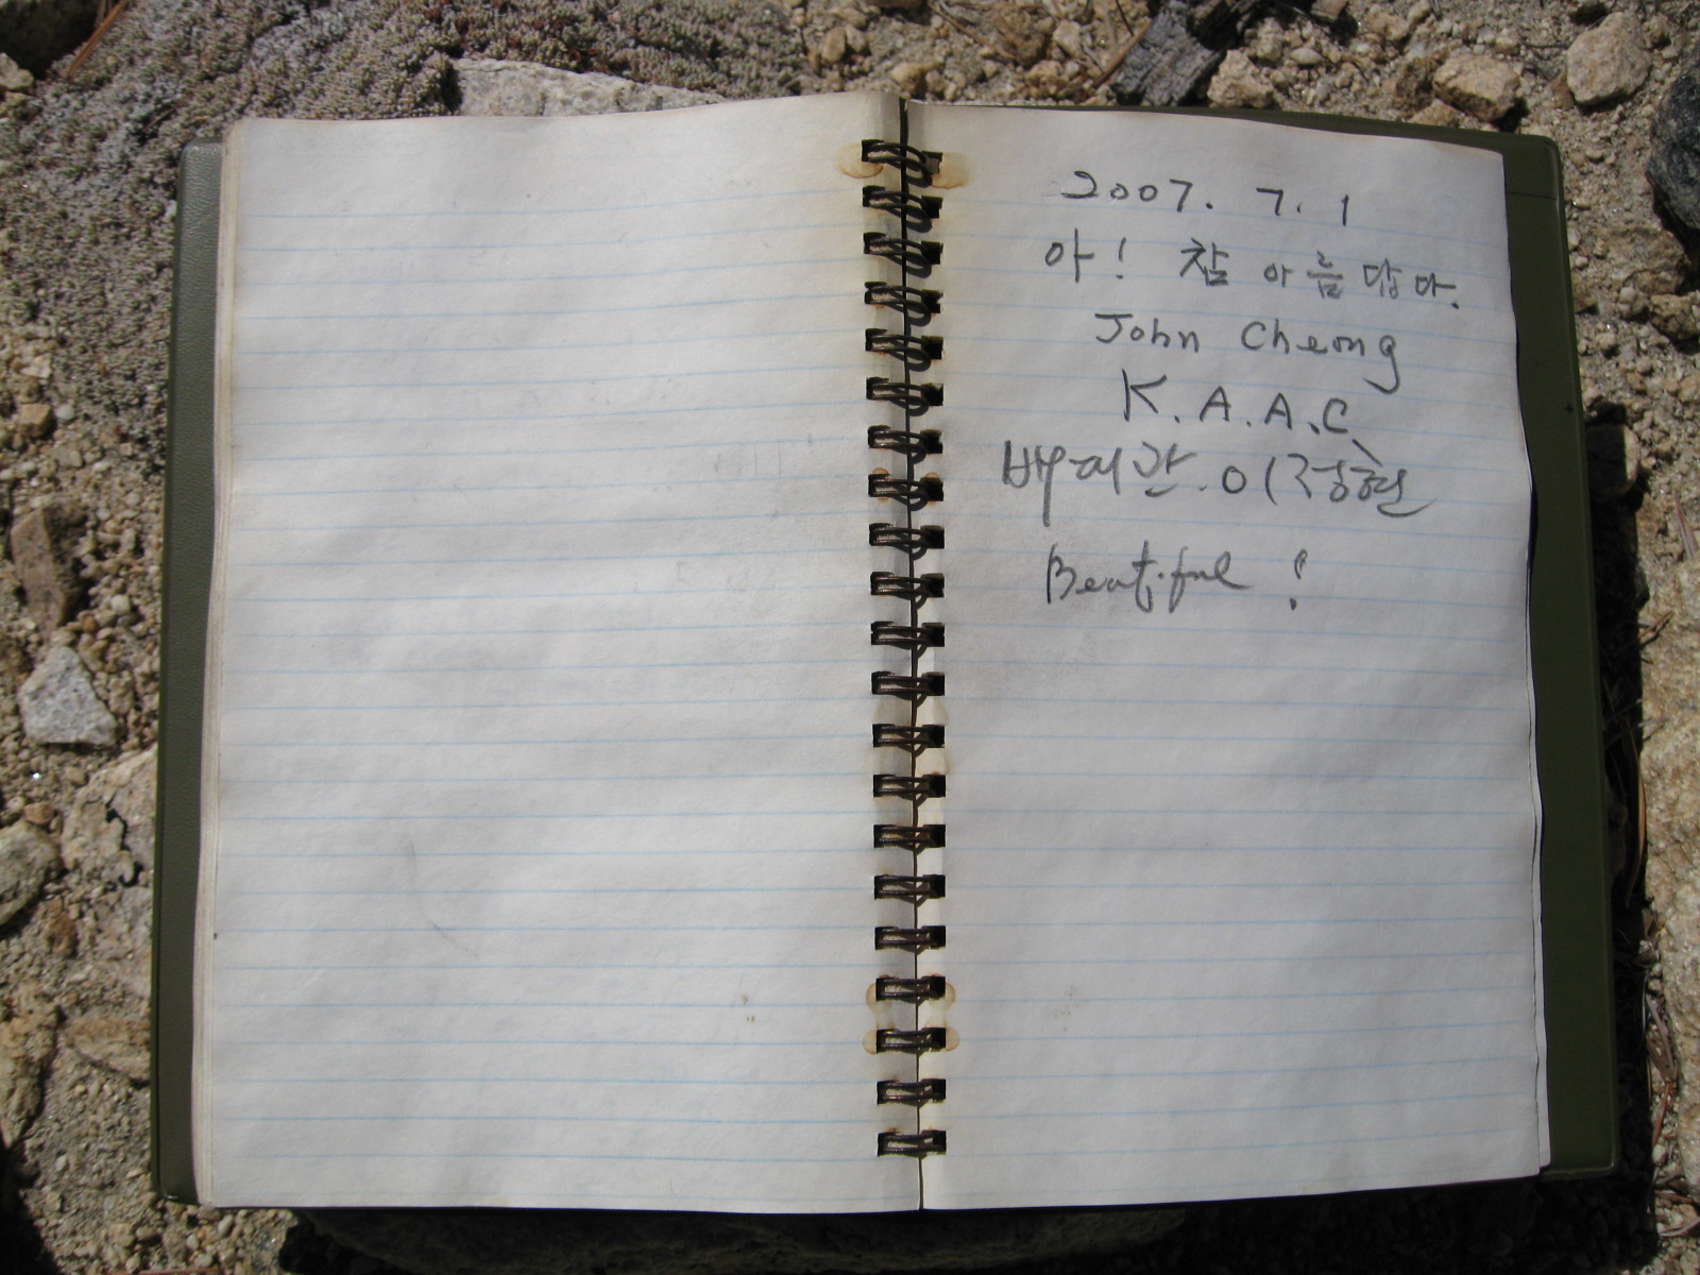 2007. 7. 1
아! 참 아름답다.
John Cheong
K.A.A.C
이정현
Beautiful !